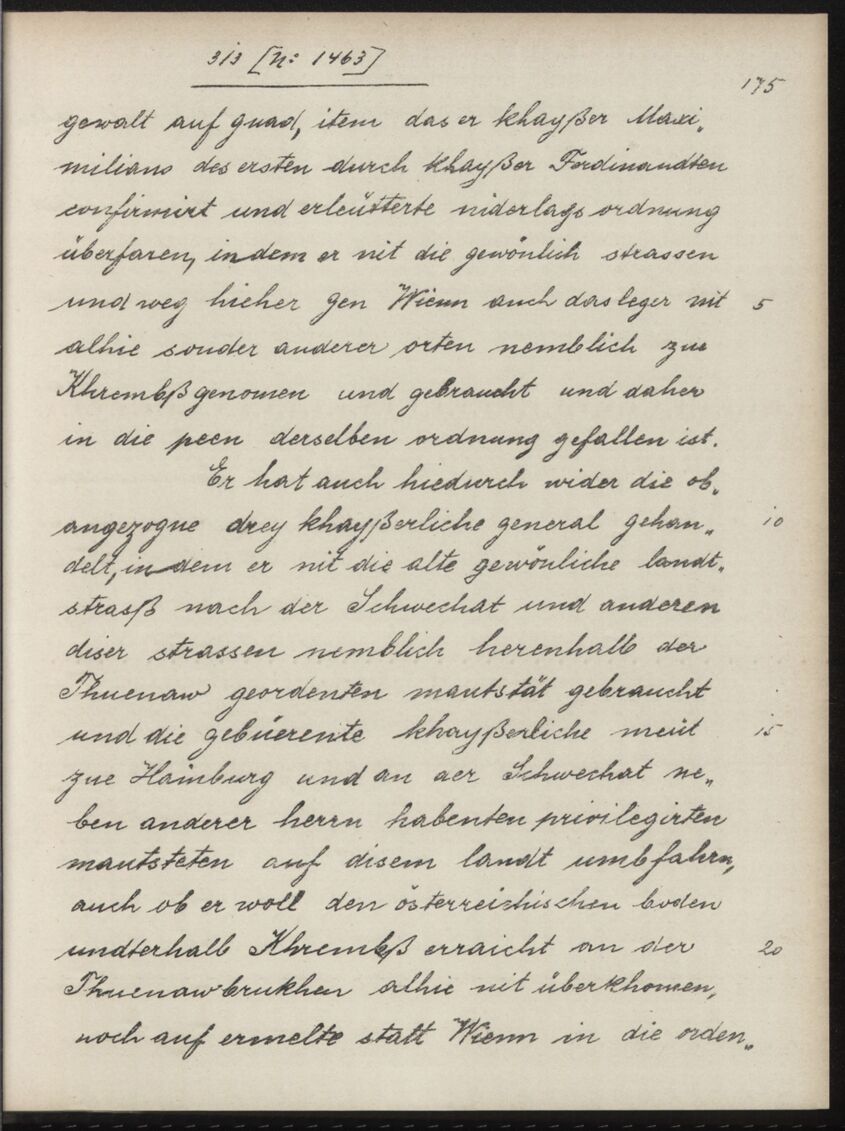 313 [N: 1463]
175
gewalt auf gnad, item das er khayßer Maxi„
milians des ersten durch khayßer Ferdinandten
confirmirt und erleütterte niderlags ordnung
überfaren, in dem er nit die gewönlich strassen
und weg hieher gen Wienn auch das leger nit 5
alhie sonder anderer orten nemblich zue
Khrembß genomen und gebraucht und daher
in die peen derselben ordnung gefallen ist.
Er hat auch hiedurch wider die ob„
angezogne drey khayßerliche general gehan„ 10
delt, in dem er nit die alte gewönliche landt„
strasß nach der Schwechat und anderen
diser strassen nemblich herenhalb der
Thuenaw geordenten mautstät gebraucht
und die gebüerente khayßerliche meüt 15
zue Haimburg und an der Schwechat ne„
ben anderer herrn habenten privilegirten
mautsteten auf disem landt umbfahrn,
auch ob er woll den österreichischen boden
undterhalb Khrembß erraicht an der 20
Thuenawbrukhen alhie nit überkhomen,
noch auf ermelte statt Wienn in die orden„